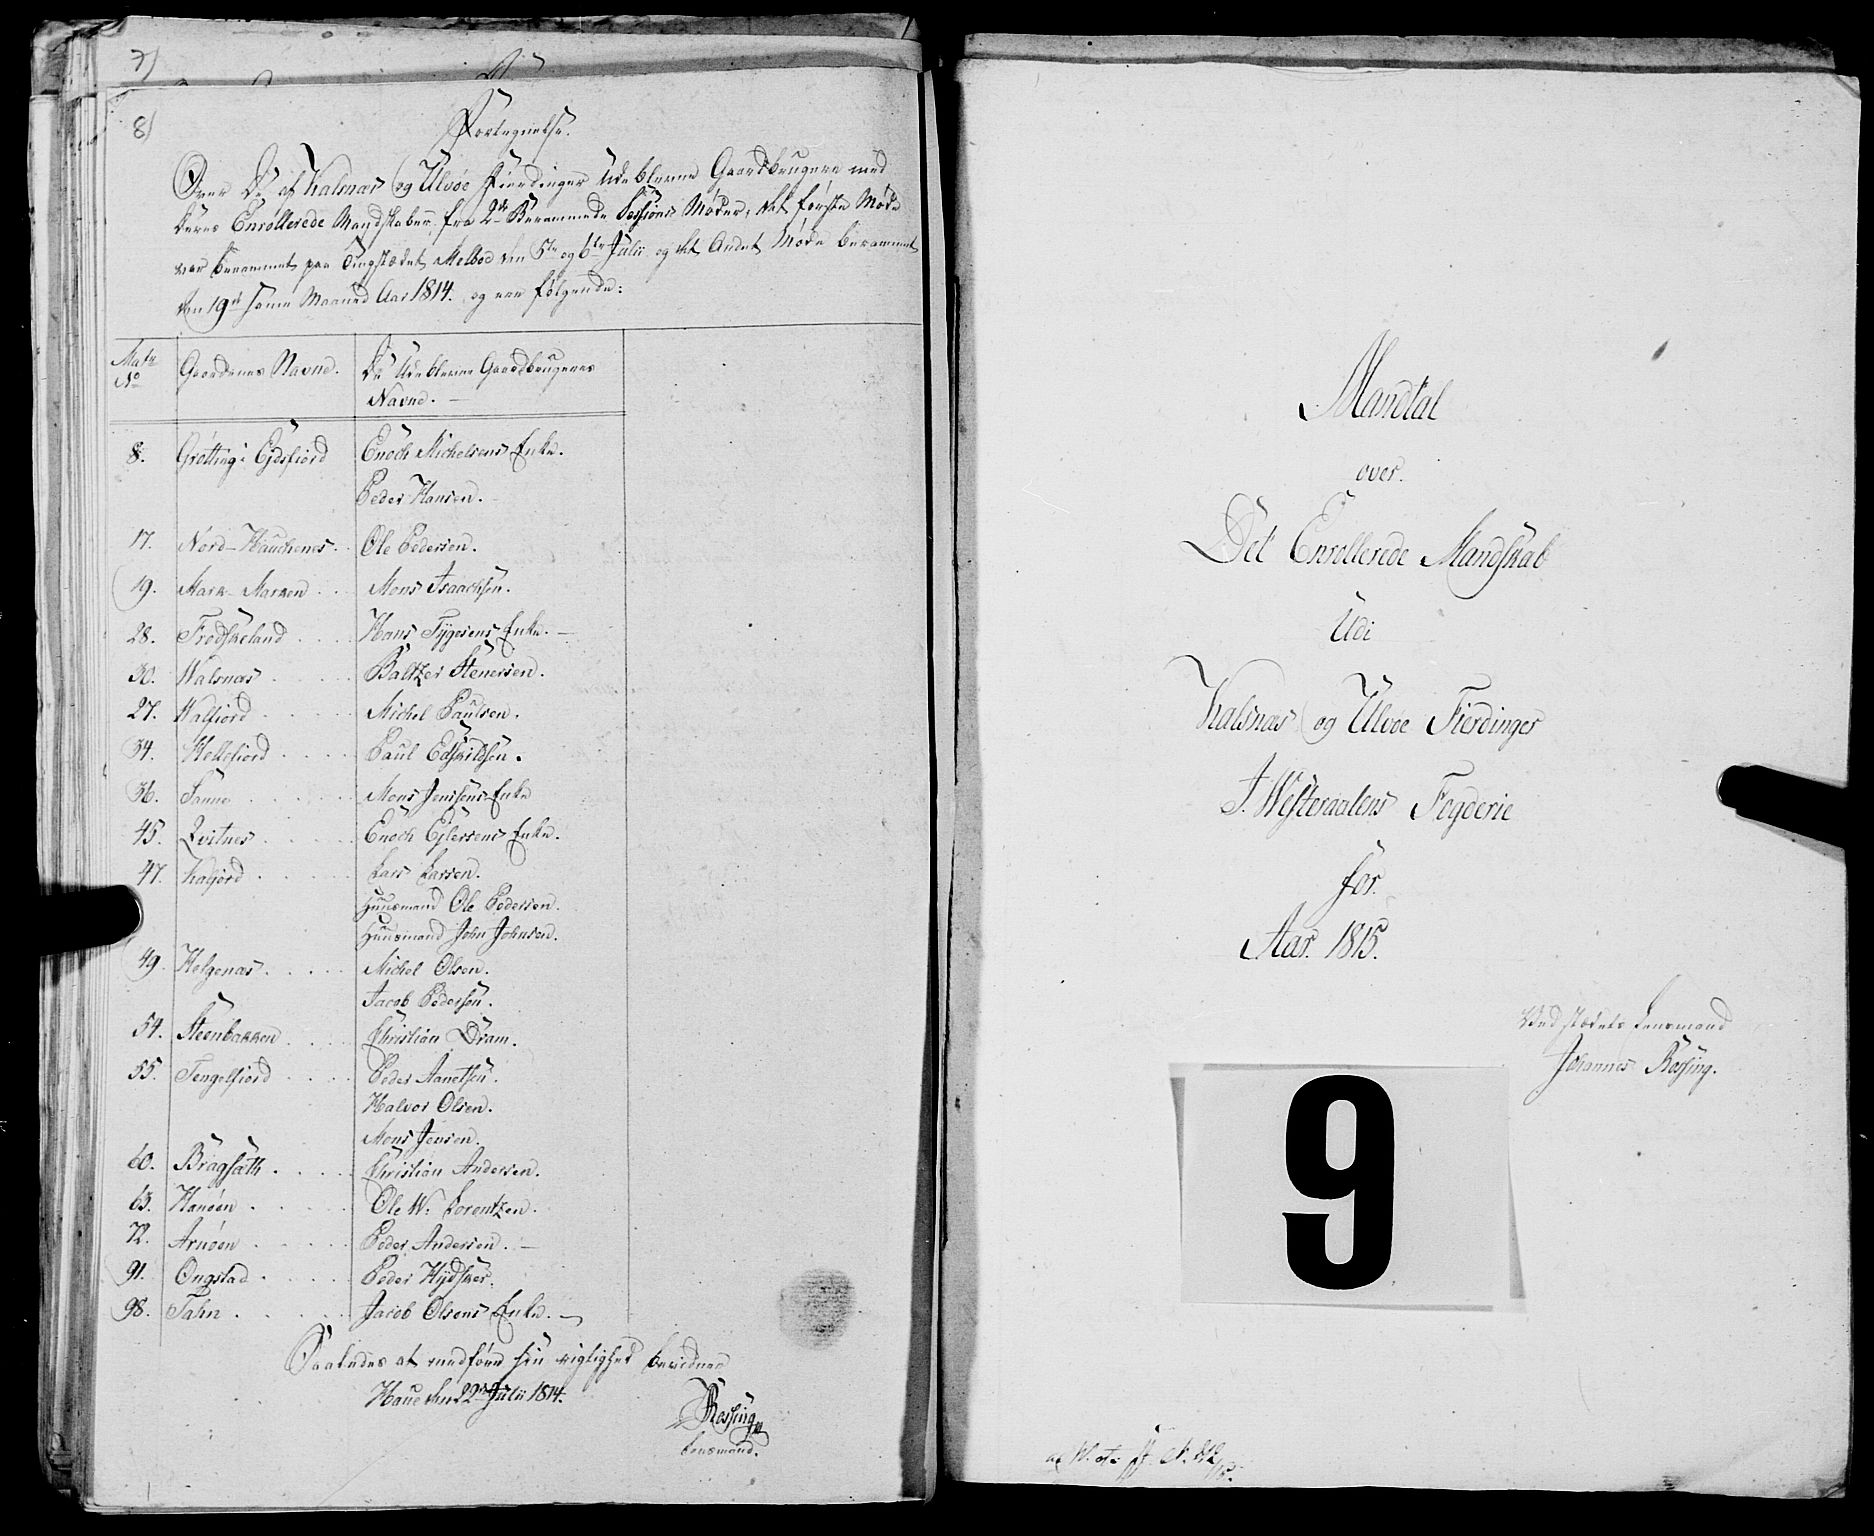 7)
8)
Fortegnelse.
Over De af Kalsnæs og Ulvøe Fierdinger Udeblevne Gaardbrugere med
deres Enrollerede Mandskaber fra 2de Berammede Sessions Møder, det første Møde
var berammet paa Tingstædet Melboe den 5te og 6te Julii og det Andet Møde berammet
den 19de samme Maaned Aar 1814. og ere følgende:
Matr No
Gaardenes Navne.
De Udeblevne Gaardbrugeres
Navne. —
8. Grøtting i Ejdsfiord Enoch Michelsens Enke.
Peder Hansen. —
17. Nord-Hauchenes. Ole Pedersen.
19. Mark-Marken . . Mons Isaachsen.
28. Frodskeland . . . Hans Tygesens Enke. —
30. Walsnæs . . . . Baltzer Stenersen.
27. Walfiord . . . . Michel Paulsen.
34. Kellefiord . . . . Paul Edskildsen.
36. Sanne . . . . . Mons Jenssens Enke
45. Qvitnes . . . . . Enoch Ejlersens Enke.
47. Kaljord . . . . Lars Larsen.
Huusmand Ole Pedersen.
Huusmand John Johnsen.
49. Helgenæs . . . . . Michel Olsen.
Jacob Pedersen.
54. Steenbakken . . . . Christian Dram.
55. Tengelfiord . . . . Peder Aanetsen.
Halvor Olsen.
Mons Jensen.
60. Bragsæth . . . . . Christian Andersen.
63. Hanøen . . . . . Ole W: Lorentzen.
72. Arnøen . . . . . Peder Andersen. —
91. Ongstad . . . . . Peder Hydsker.
98. Tahn . . . . . . Jacob Olsens Enke. —
Saaledes at medføre sin rigtighed bevidner
Haue den 22de Julii 1814.
Røssing
Lensmand.
Mandtal
over.
Det Enrollerede Mandskab
Udi
Kalsnæs og Ulvøe Fierdinger
I Westeraalens Fogderie
for.
Aar. 1815.
Ved stædets Lensmand
Johannes Røssing.
9